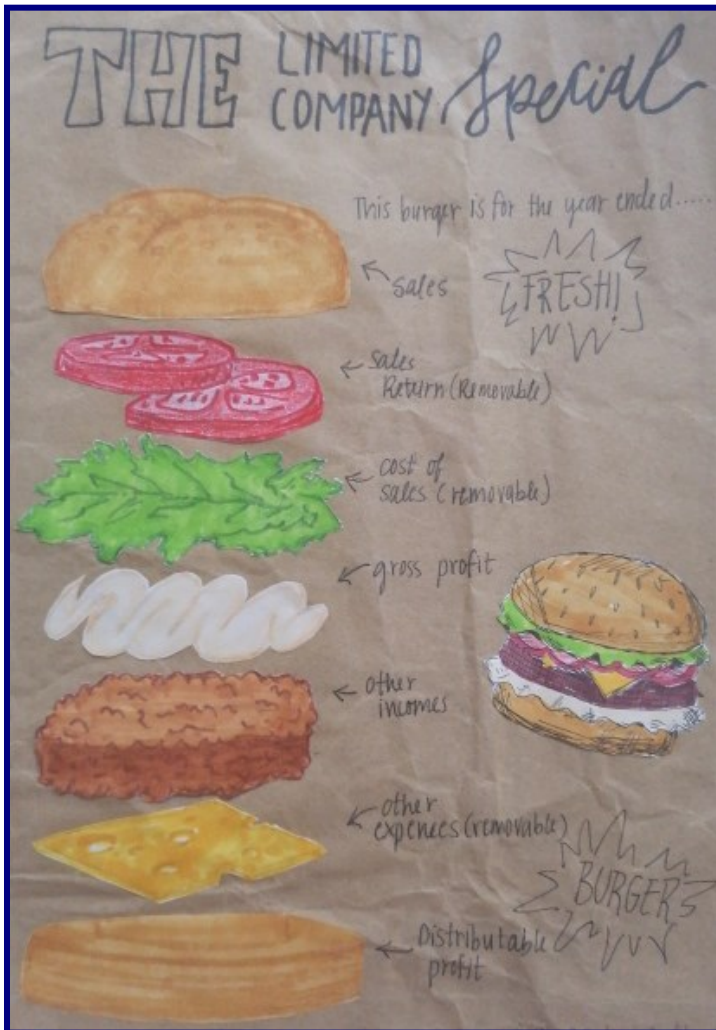 THE LIMITED
COMPANY Special
This burger is for the year ended.....
Sales
FRESH!
Sales
Return (Removable)
cost of
sales (removable)
gross profit
other
incomes
other
expences (removable)
BURGERS
Distributable
profit